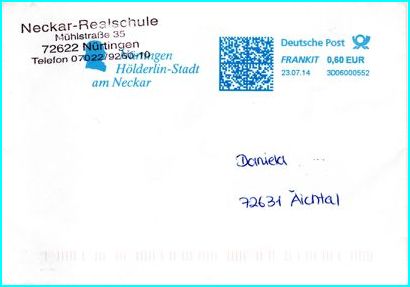 Neckar-Realschule
Mühlstraße 35
72622 Nürtingen
Telefon 07022/9260-10
Nürtingen
Hölderlin-Stadt
am Neckar
Deutsche Post
FRANKIT 0,60 EUR
23.07.14 3D06000552
Daniela
72631 Aichtal